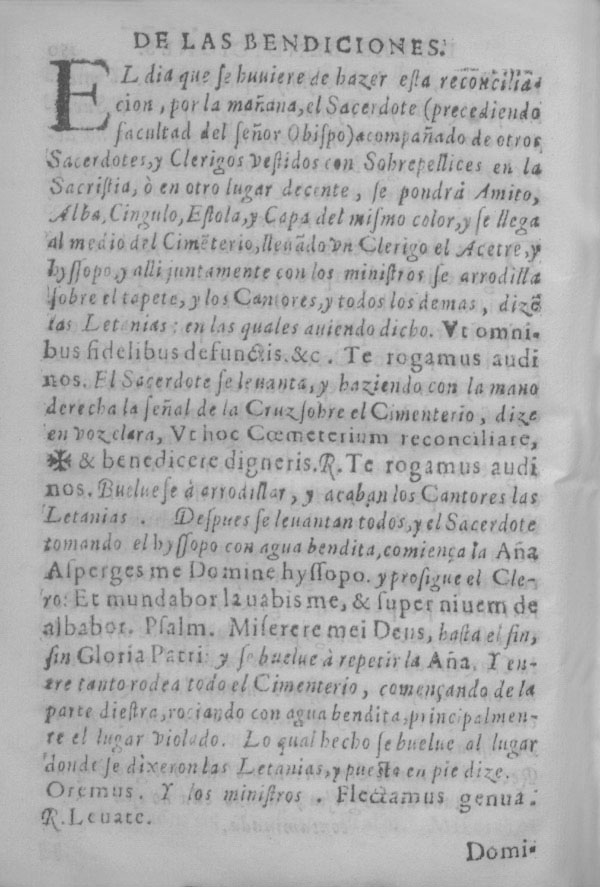 DE LAS BENDICIONES.
EL dia que ſe huuiere de hazer eſta reconcilia-
cion, por la mañana, el Sacerdote (precediendo
facultad del ſeñor Obiſpo) acompañado de otros
Sacerdotes, y Clerigos veſtidos con Sobrepellices en la
Sacriſtia, ò en otro lugar decente, ſe pondrá Amito,
Alba, Cingulo, Eſtola, y Capa del miſmo color, y ſe llega
al medio del Cimẽterio, lleuãdo vn Clerigo el Acetre, y
hyſſopo, y alli juntamente con los miniſtros ſe arrodilla
ſobre el tapete, y los Cantores, y todos los demas, dizẽ
las Letanias: en las quales auiendo dicho. Vt omni-
bus fidelibus defunctis. &c. Te rogamus audi
nos. El Sacerdote ſe leuanta, y haziendo con la mano
derecha la ſeñal de la Cruz ſobre el Cimenterio, dize
en voz clara, Vt hoc Cœmeterium reconciliare,
✠ & benedicere digneris. ℟. Te rogamus audi
nos. Bueluese à arrodillar, y acaban los Cantores las
Letanias. Deſpues ſe leuantan todos, y el Sacerdote
tomando el hyſſopo con agua bendita, comiença la Aña
Aſperges me Domine hyſſopo. y proſigue el Cle-
ro: Et mundabor lauabis me, & ſuper niuem de
albabor. Pſalm. Miſerere mei Deus, haſta el fin,
ſin Gloria Patri: y ſe buelue à repetir la Aña. Y en-
tre tanto rodea todo el Cimenterio, començando de la
parte dieſtra, rociando con agua bendita, principalmen-
te el lugar violado. Lo qual hecho ſe buelue al lugar
donde ſe dixeron las Letanias, y pueſta en pie dize.
Oremus. Y los miniſtros. Flectamus genua.
℟. Leuate.
Domi-